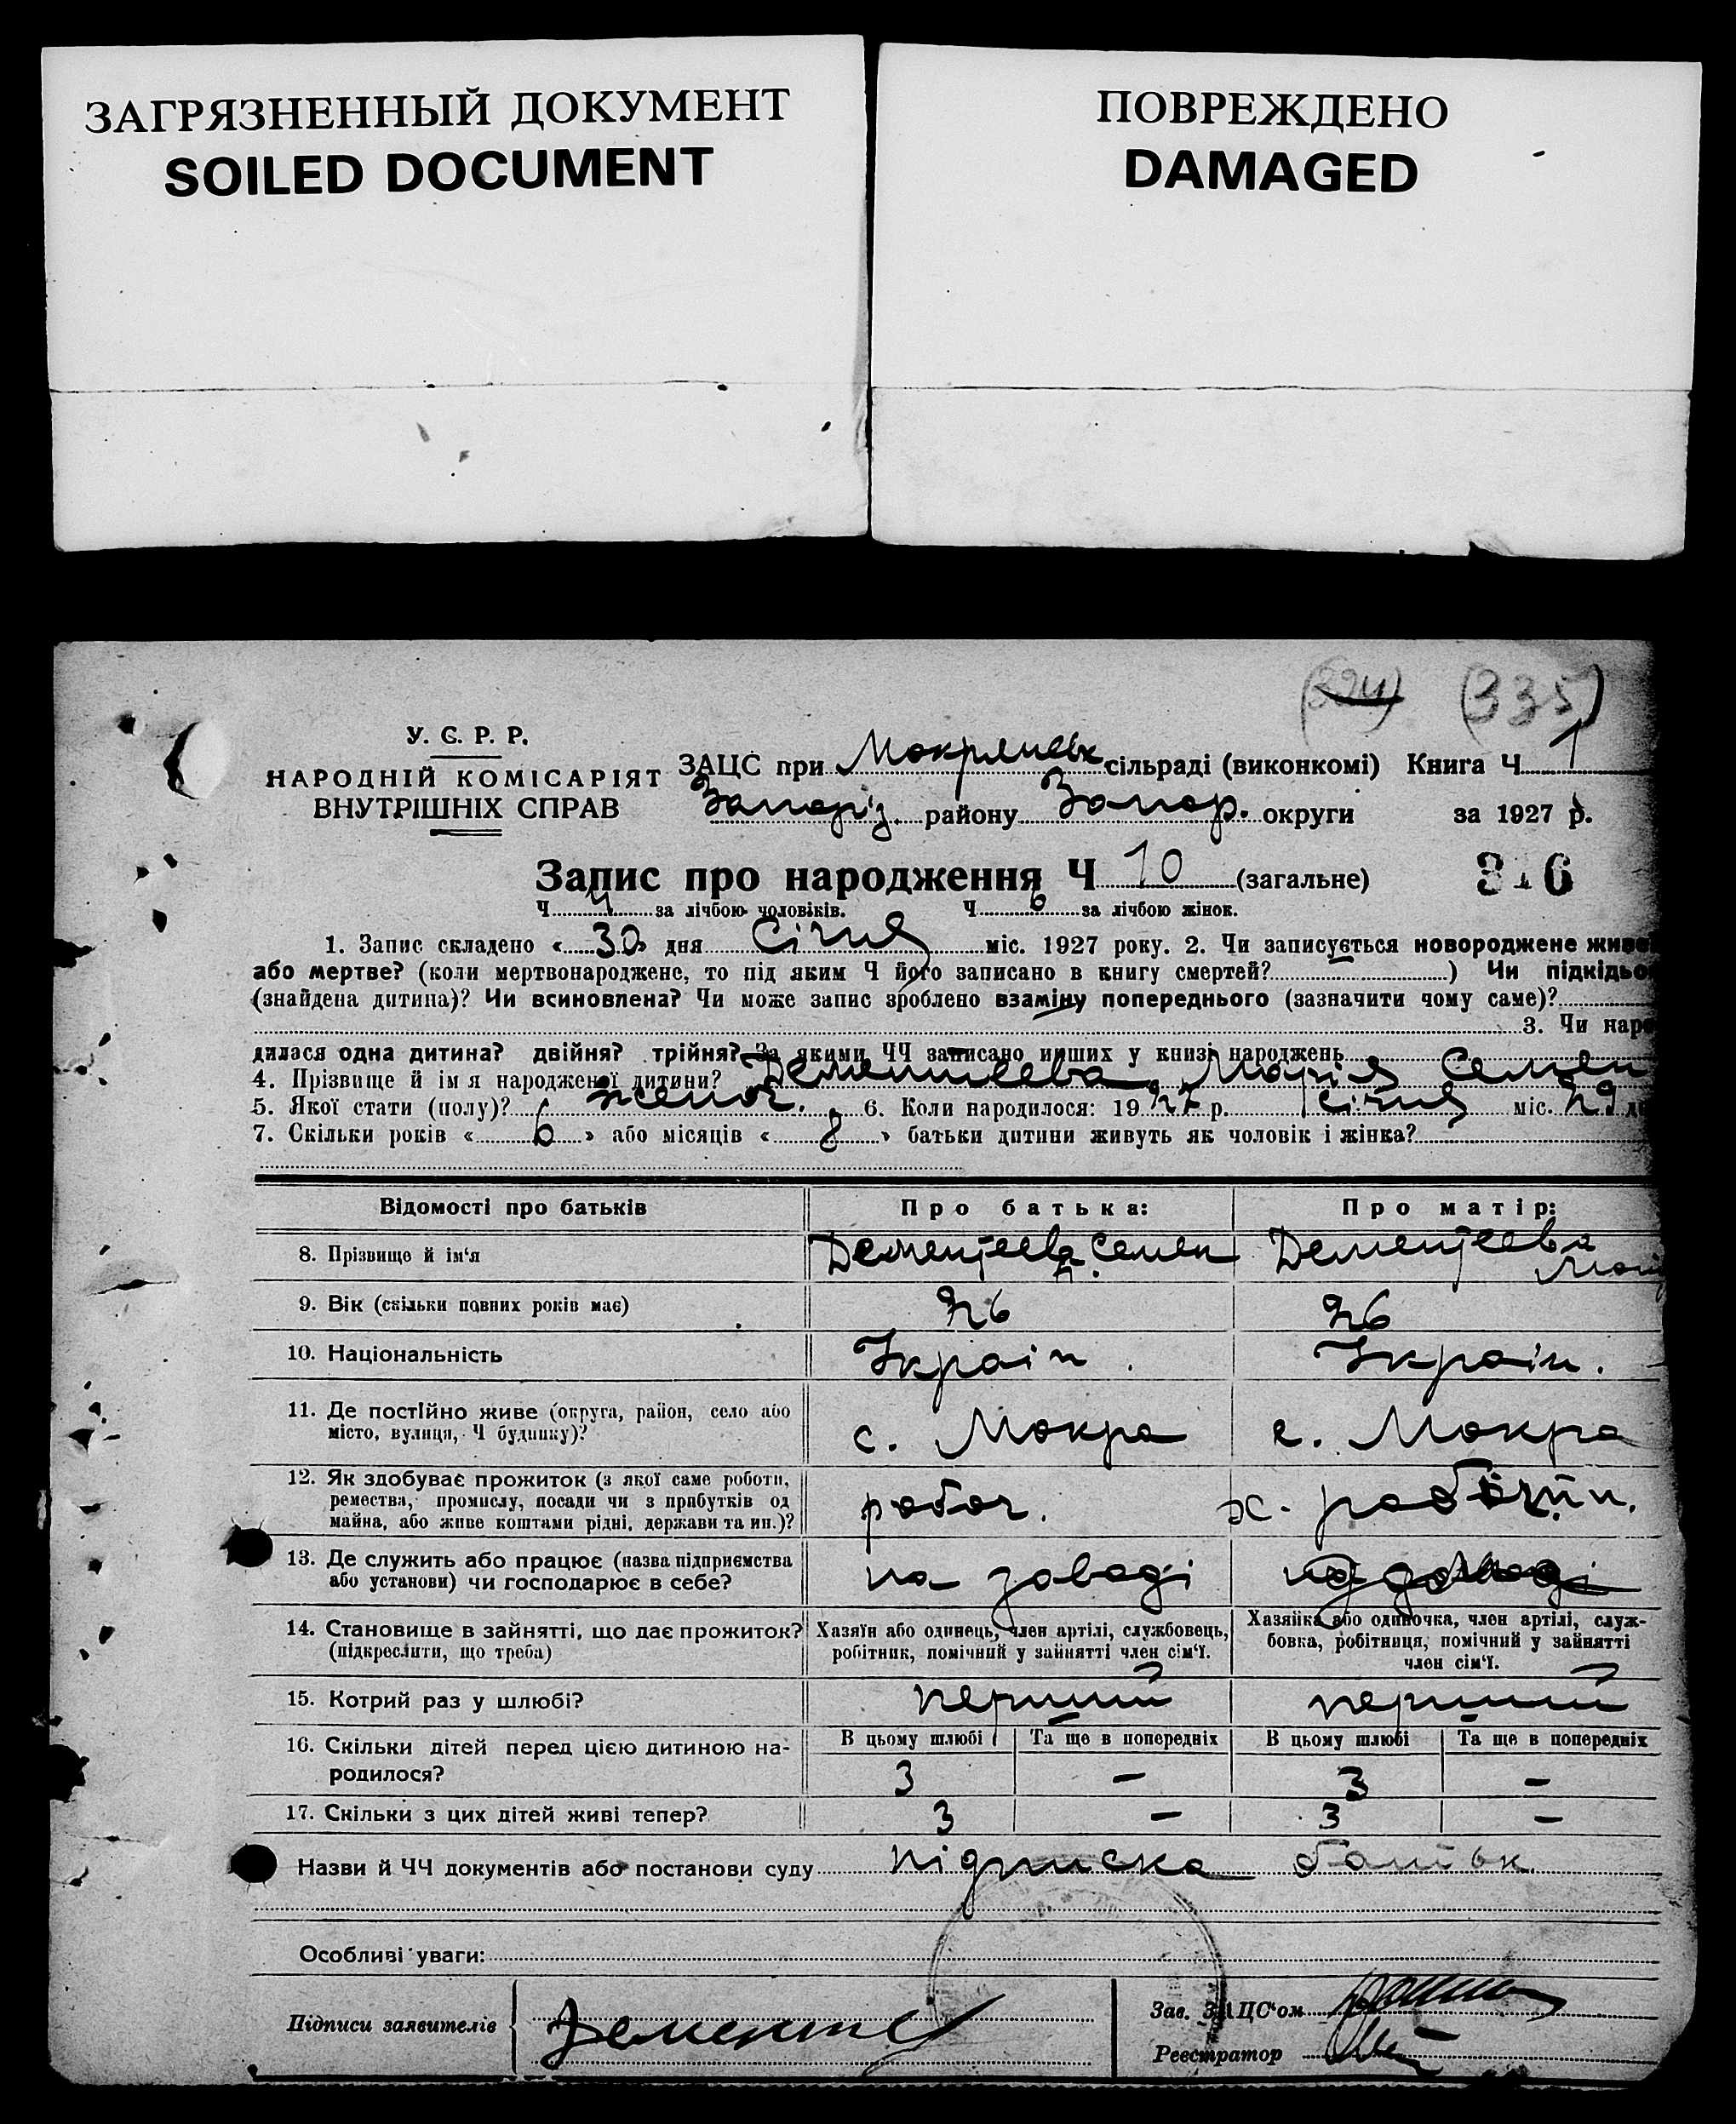 ЗАГРЯЗНЕННЫЙ ДОКУМЕНТ
SOILED DOCUMENT
ПОВРЕЖДЕНО
DAMAGED
(324) (335)
У. С. Р. Р.
НАРОДНІЙ КОМІСАРІЯТ
ВНУТРІШНІХ СПРАВ
ЗАЦС при Мокрянськ сільраді (виконкомі) Книга Ч 1
Запоріз. району Запор. округи за 1927 р.
Запис про народження Ч 10 (загальне) 316
Ч 4 за лічбою чоловіків. Ч 6 за лічбою жінок.
1. Запис складено «30» дня Січня міс. 1927 року. 2. Чи записується новороджене живе
або мертве? (коли мертвонароджене, то під яким Ч його записано в книгу смертей?) Чи підкідьо
(знайдена дитина)? Чи всиновлена? Чи може запис зроблено взаміну попереднього (зазначити чому саме)?
3. Чи наро
дилася одна дитина? двійня? трійня? За якими ЧЧ записано инших у книзі народжень
4. Прізвище й ім'я народженої дитини? Дементеева Марія Семен
5. Якої стати (полу)? женоч. 6. Коли народилося: 1927 р. Січня міс. 29 дн
7. Скільки років «6» або місяців «8» батьки дитини живуть як чоловік і жінка?
Відомості про батьків Про батька: Про матір:
8. Прізвище й ім'я Дементеева Семен Дементеева
9. Вік (скільки повних років має) 26 26
10. Національність Україн. Україн.
11. Де постійно живе (округа, район, село або
місто, вулиця, Ч будинку)? с. Мокра с. Мокра
12. Як здобуває прожиток (з якої саме роботи,
ремества, промислу, посади чи з прибутків од
майна, або живе коштами рідні, держави та ин.)? робоч.
13. Де служить або працює (назва підприємства
або установи) чи господарює в себе? на заводі
14. Становище в зайнятті, що дає прожиток?
(підкреслити, що треба)
Хазяїн або одинець, член артілі, службовець,
робітник, помічний у зайнятті член сім'ї.
Хазяїка або одиночка, член артілі, служ-
бовка, робітниця, помічний у зайнятті
член сім'ї.
15. Котрий раз у шлюбі? перший перший
16. Скільки дітей перед цією дитиною на-
родилося?
В цьому шлюбі Та ще в попередніх В цьому шлюбі Та ще в попередніх
3 — 3 —
17. Скільки з цих дітей живі тепер? 3 — 3 —
Назви й ЧЧ документів або постанови суду підписка батьк.
Особливі уваги:
Підписи заявителів Дементе
Зав. ЗАЦС'ом
Реєстратор